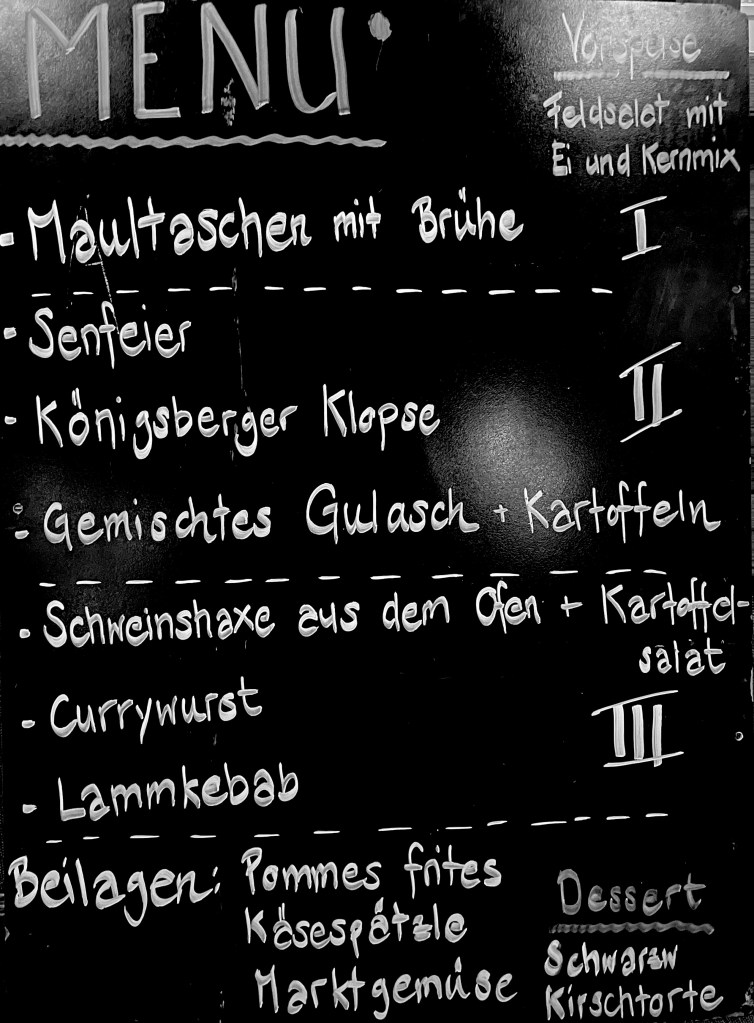 MENU
Vorspeise
Feldselet mit
Ei und Kernmix
- Maultaschen mit Brühe
I
- Senfeier
II
- Königsberger Klopse
- Gemischtes Gulasch + Kartoffeln
- Schweinshaxe aus dem Ofen + Kartoffel-
salat
- Currywurst
III
- Lammkebab
Beilagen: Pommes frites
Käsespätzle
Marktgemüse
Dessert
Schwarzw
Kirschtorte